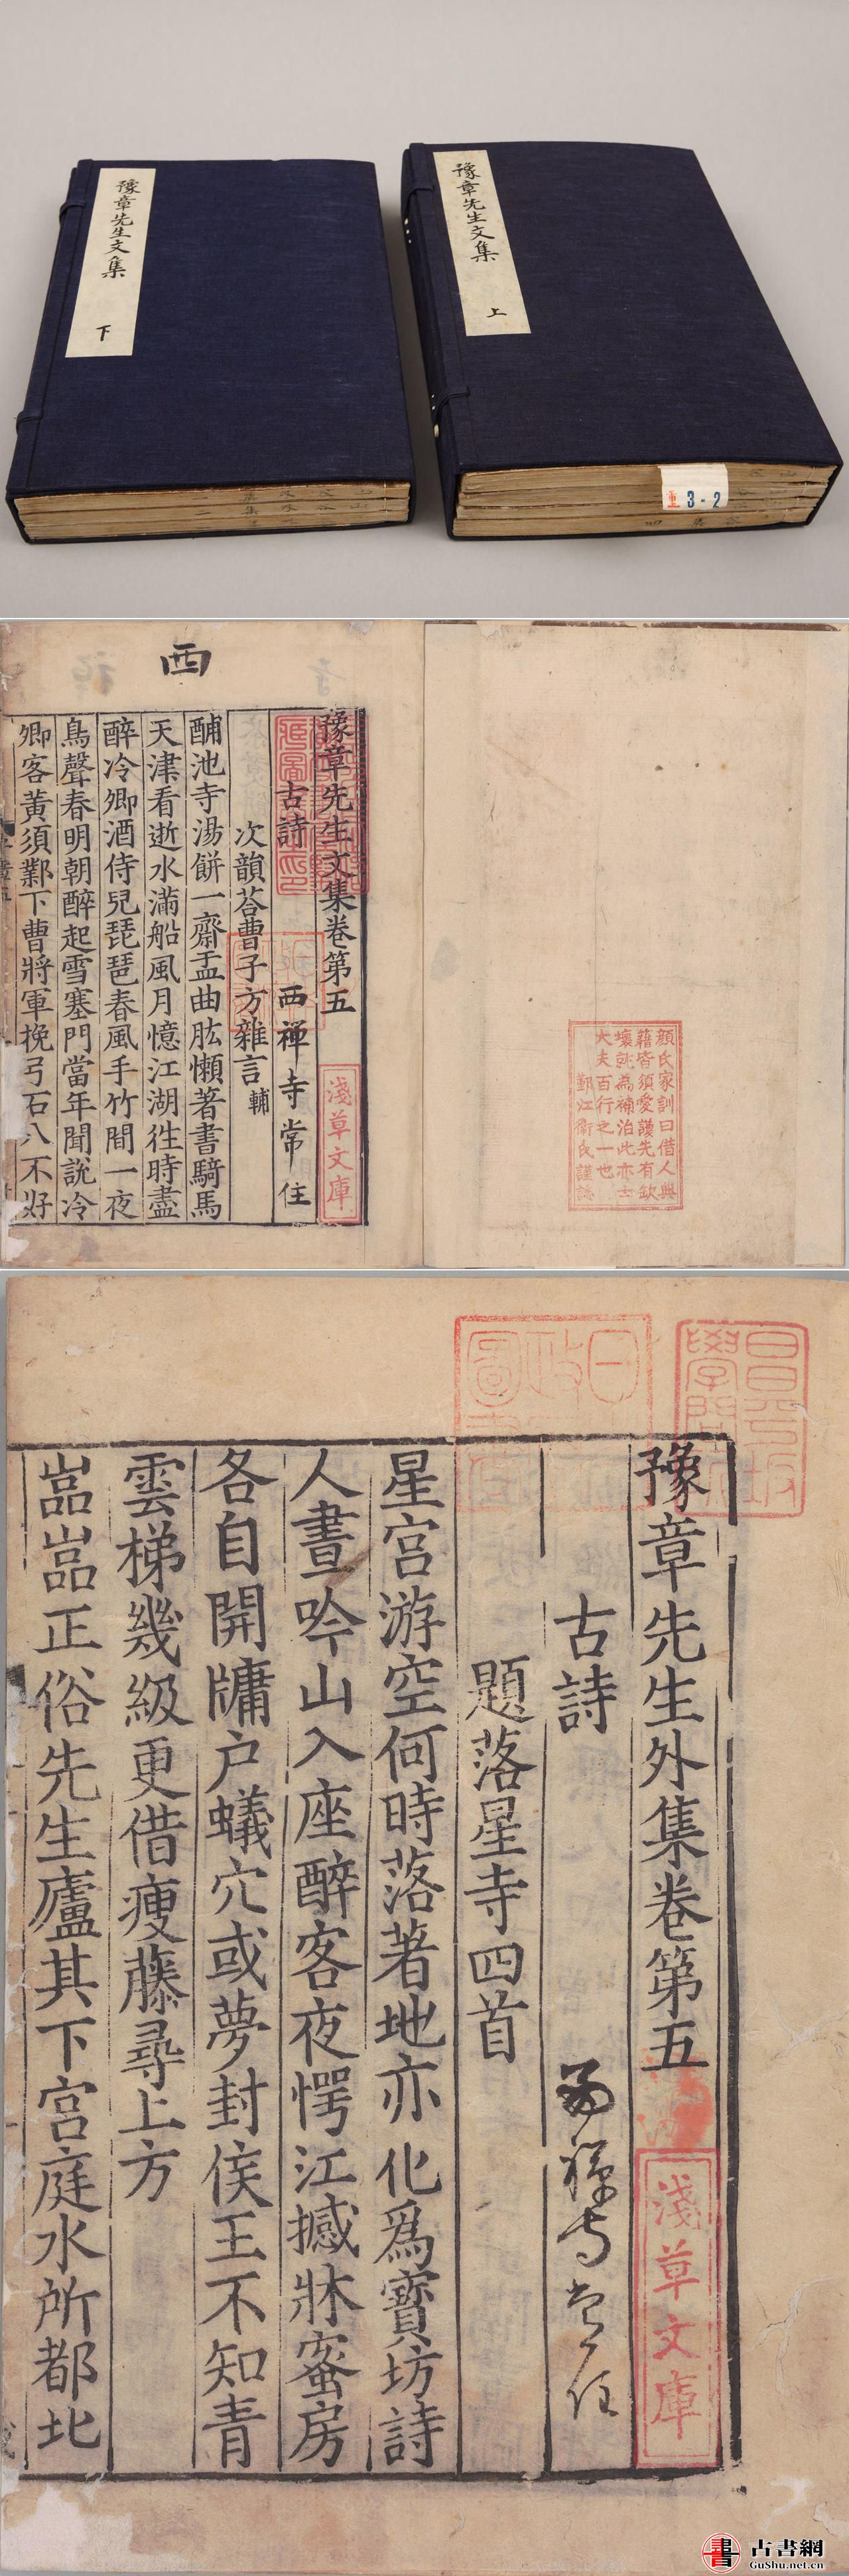 豫章先生文集
上
豫章先生文集
下
重 3-2
西
顏氏家訓曰借人典
籍皆須愛護先有缺
壞就為補治此亦士
大夫百行之一也
鄞江衞氏謹誌
豫章先生文集卷第五
古詩
西禅寺常住
次韻荅曹子方雜言 輔
酺池寺湯餅一齋盂曲肱懶著書騎馬
天津看逝水滿船風月憶江湖徃時盡
醉冷卿酒侍兒琵琶春風手竹間一夜
鳥聲春明朝醉起雪塞門當年聞說冷
卿客黃須鄴下曹將軍挽弓石八不好
淺草文庫
昌平坂
學問所
日
政
圖
豫章先生外集卷第五
古詩
西禅寺常住
題落星寺四首
星宫游空何時落著地亦化爲寶坊詩
人晝吟山入座醉客夜愕江撼牀蜜房
各自開牖户蟻穴或夢封侯王不知青
雲梯幾級更借瘦藤尋上方
嵓嵓正俗先生廬其下宫庭水所都北
淺草文庫
書 古書網
GuShu.net.cn